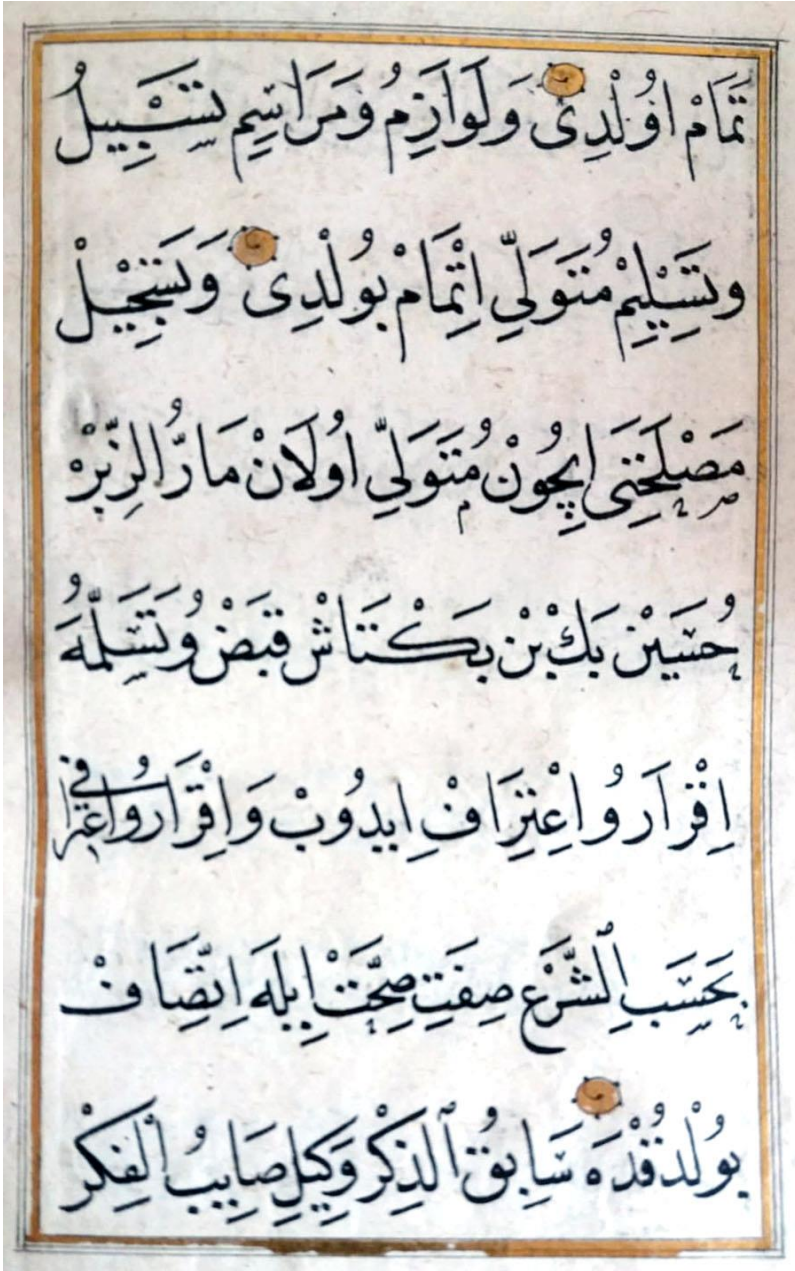 تَمَامْ اوُلْدِى وَلَوَازِمُ وَمَرَاسِمِ تَسْبِيلُ
وتَسْلِيمِ مُتَوَلِّي اِتْمَامْ بوُلْدِى وَتَسْجِيلْ
مَصْلَحَتِى اِيچُونْ مُتَوَلِّي اوُلَانْ مَارُّ الزِّبرْ
حُسَيْن بَكْ بْن بَكْتَاشْ قَبَضْ وُتَسَلُّمَهُ
اِقْرَار وُ اعْتِرَافْ اِيدوُبْ وَاِقْرَار وُاعْتِرَافِى
بِحَسَبِ الشَّرْعِ صِفَتِ صِحَّتْ اِيلَه اِتِّصَافْ
بوُلْدقُدَه سَابِقُ الذِكْر وَكِيلِ صَايِبُ الْفِكْرْ